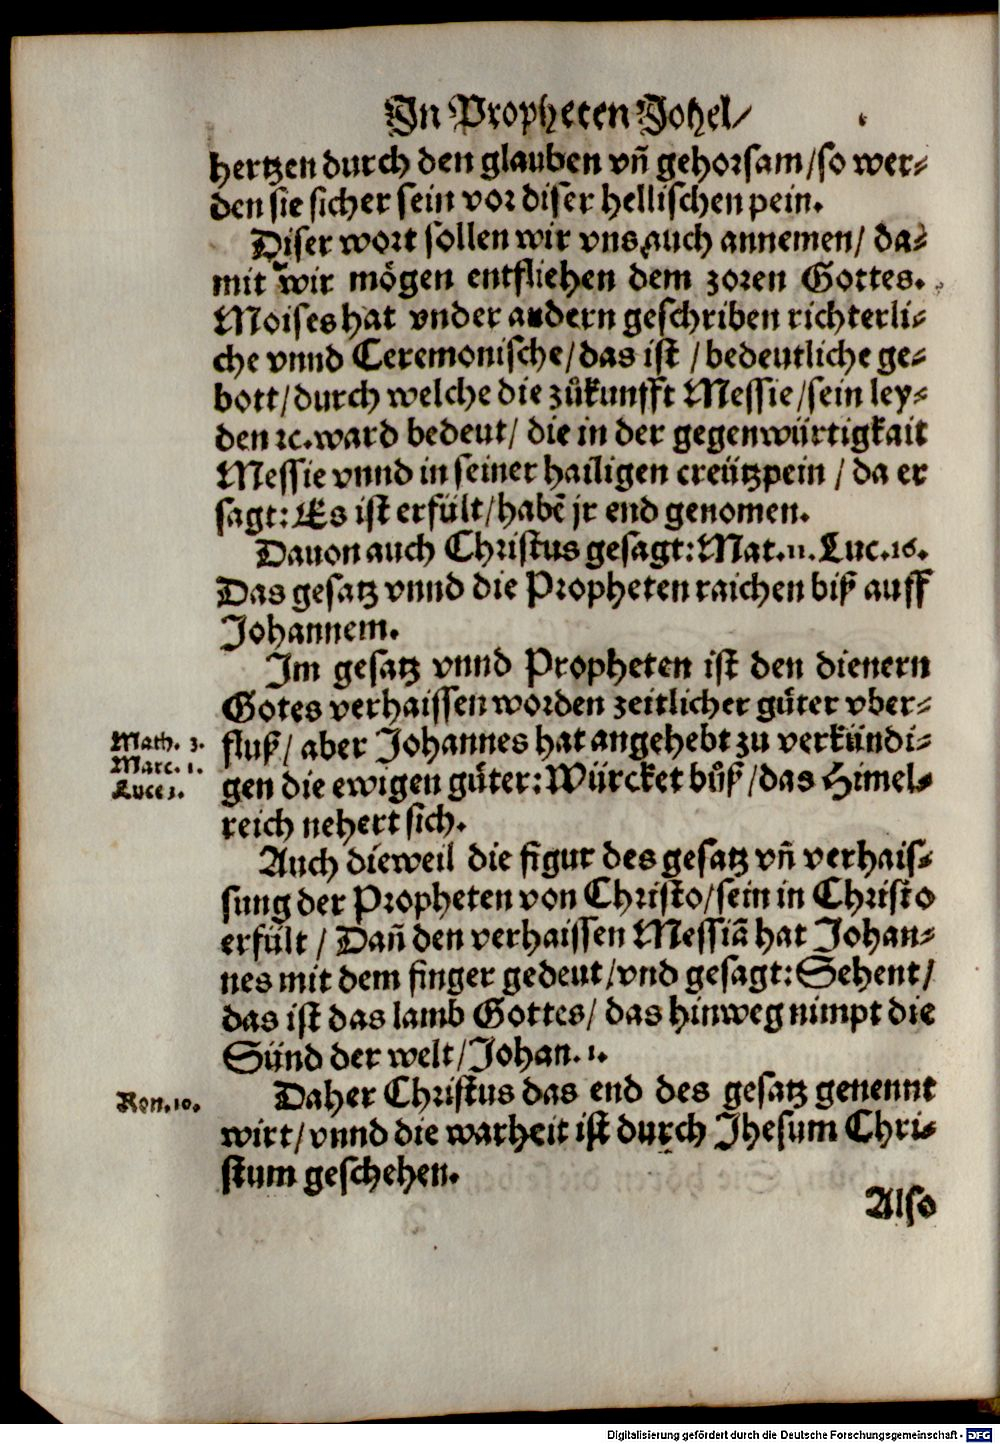 In Propheten Johel/
hertzen durch den glauben vn̄ gehorsam/so wer⸗
den sie sicher sein vor diser hellischen pein.
Diser wort sollen wir vns auch annemen/ da⸗
mit wir mögen entfliehen dem zoren Gottes.
Moises hat vnder andern geschriben richterli⸗
che vnnd Ceremonische/das ist /bedeutliche ge⸗
bott/durch welche die zůkunfft Messie/sein ley⸗
den ꝛc.ward bedeut/ die in der gegenwürtigkait
Messie vnnd in seiner hailigen creützpein / da er
sagt: Es ist erfült/habẽ jr end genomen.
Dauon auch Christus gesagt: Mat.11. Luc.16.
Das gesatz vnnd die Propheten raichen biß auff
Johannem.
Im gesatz vnnd Propheten ist den dienern
Gotes verhaissen worden zeitlicher gůter vber⸗
Math. 3.
Marc. 1.
Luce 3.
fluß/ aber Johannes hat angehebt zu verkündi⸗
gen die ewigen gůter: Würcket bůß/das Himel⸗
reich nehert sich.
Auch dieweil die figur des gesatz vn̄ verhais⸗
sung der Propheten von Christo/sein in Christo
erfült / Dan̄ den verhaissen Messiā hat Johan⸗
nes mit dem finger gedeut/vnd gesagt: Sehent/
das ist das lamb Gottes/ das hinweg nimpt die
Sünd der welt/Johan. 1.
Rom.10.
Daher Christus das end des gesatz genennt
wirt/vnnd die warheit ist durch Jhesum Chri⸗
stum geschehen.
Also
Digitalisierung gefördert durch die Deutsche Forschungsgemeinschaft - DFG